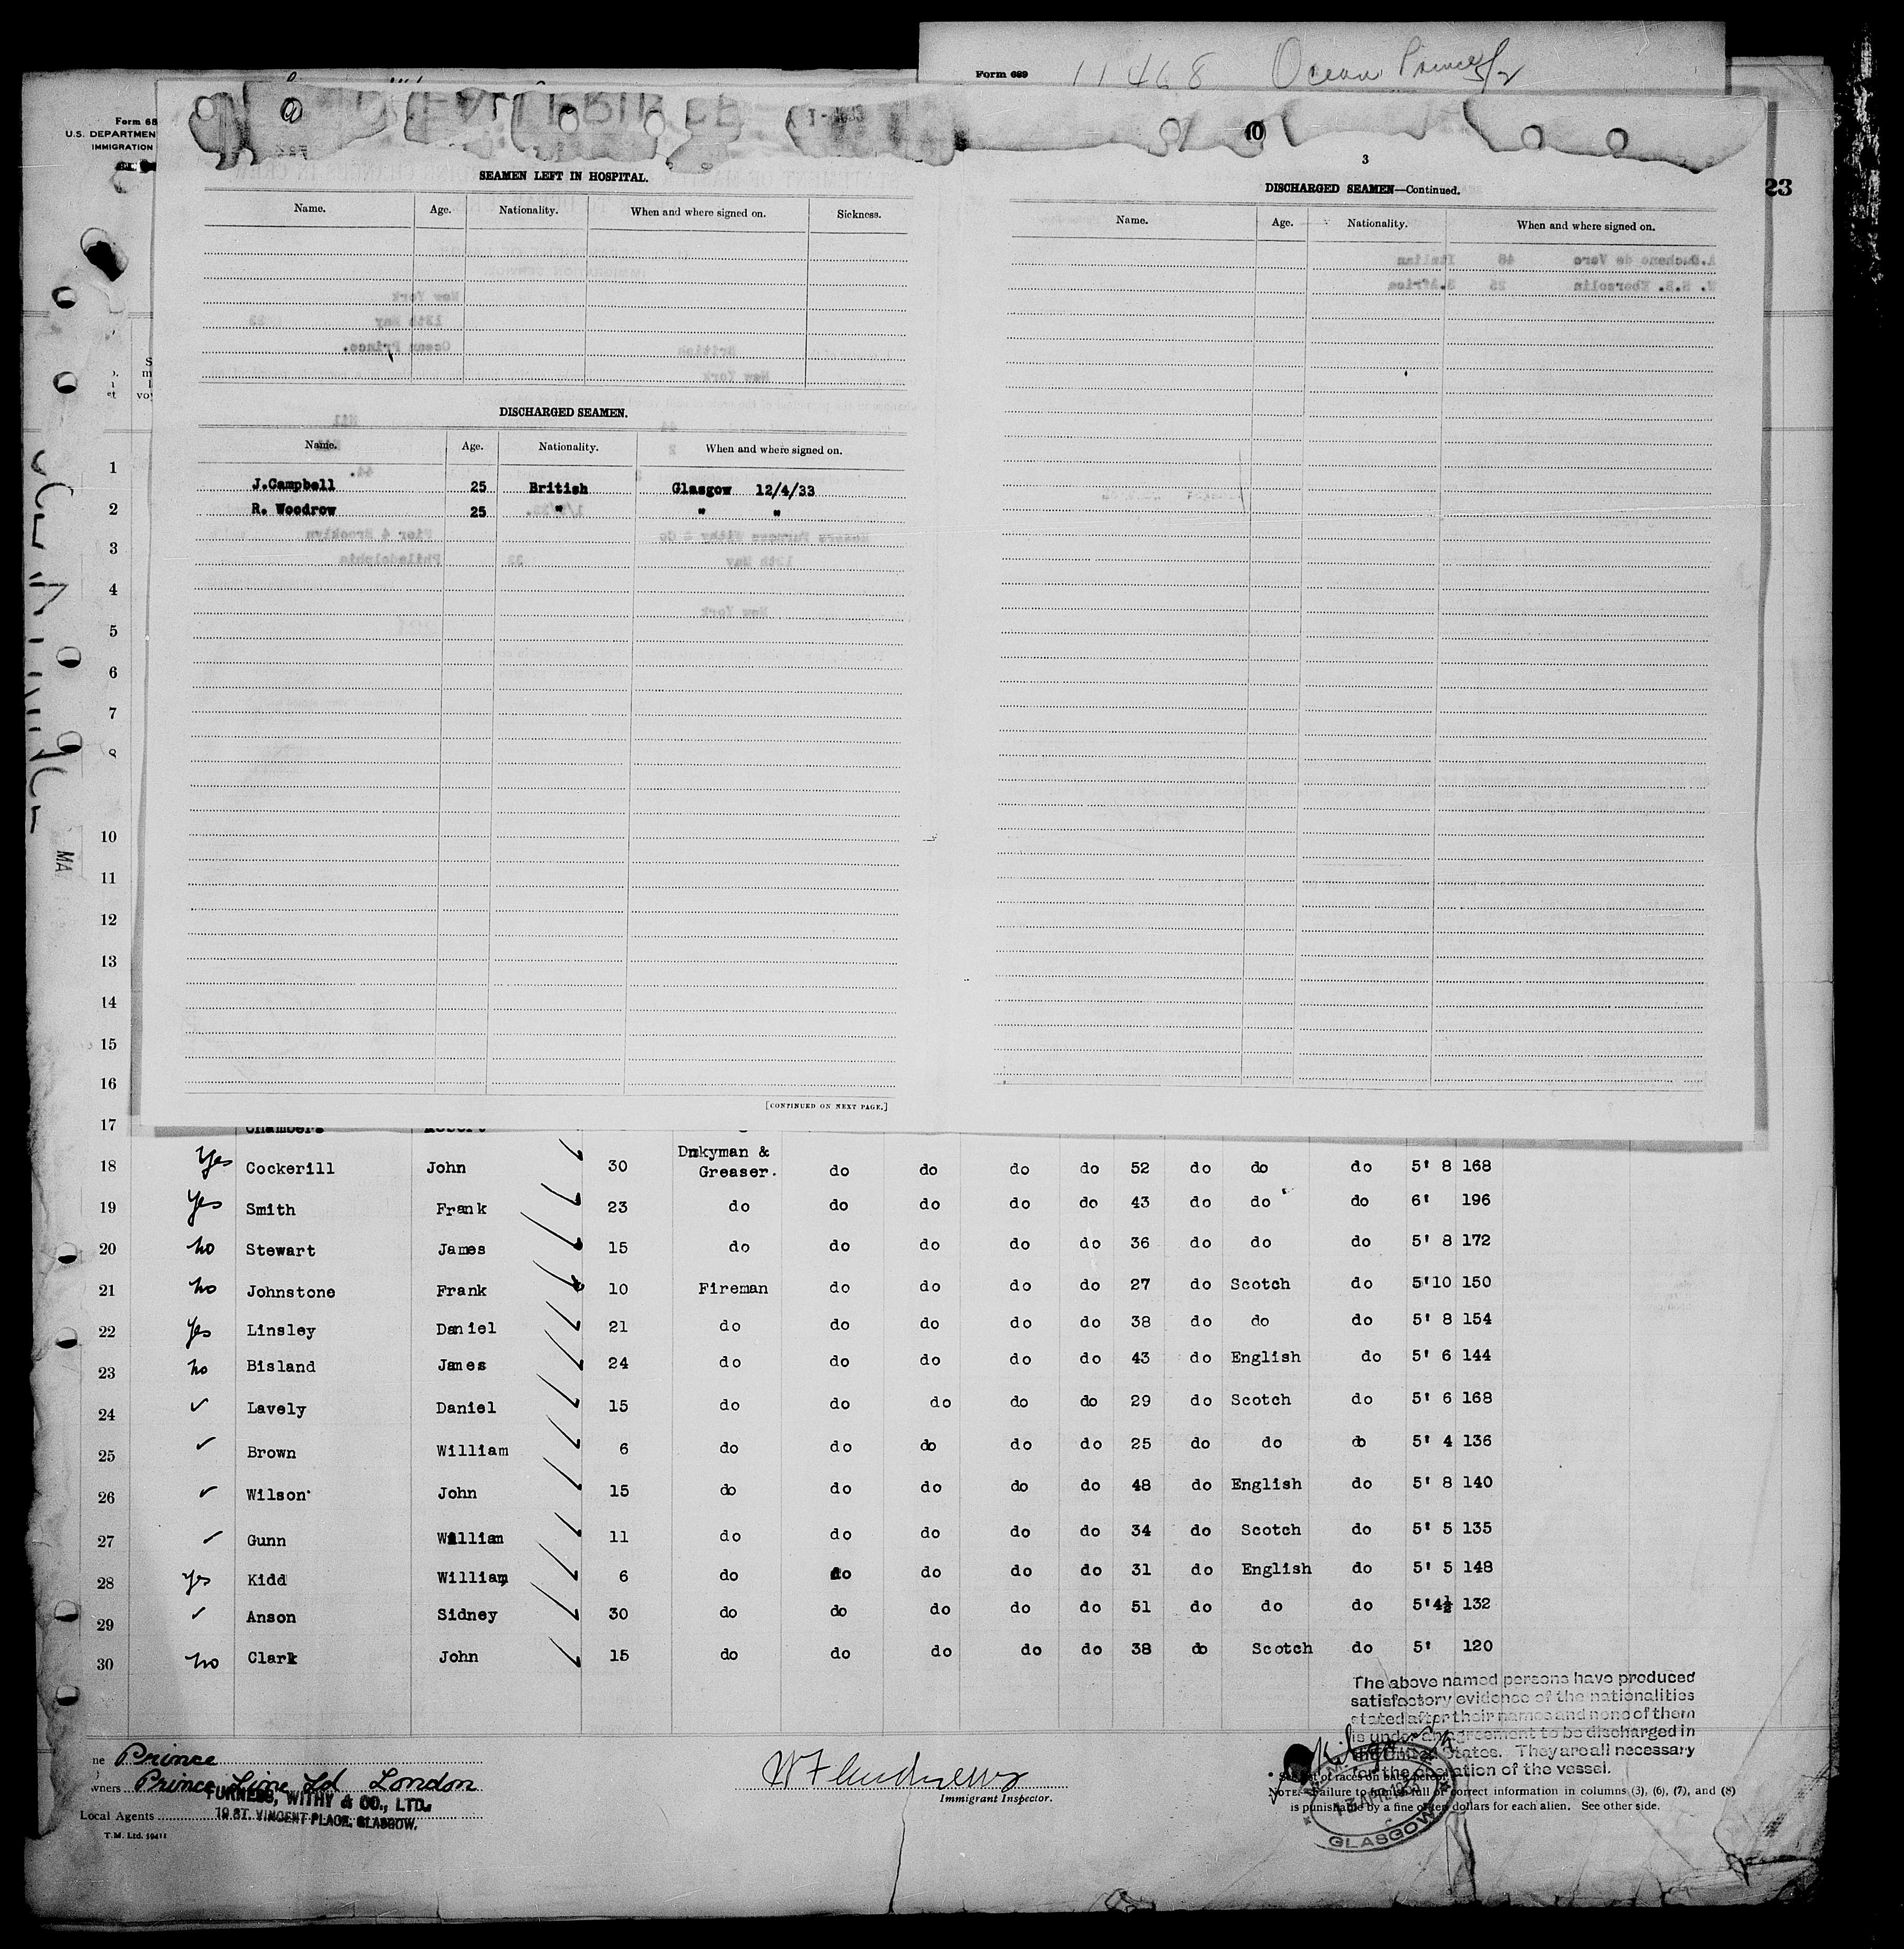 Form 689 11468 Ocean Prince 5/2
Form 68
U.S. DEPARTMEN
IMMIGRATION
10
3
23
SEAMEN LEFT IN HOSPITAL.
Name. Age. Nationality. When and where signed on. Sickness.
DISCHARGED SEAMEN.
Name. Age. Nationality. When and where signed on.
J.Campbell 25 British Glasgow 12/4/33
R. Woodrow 25 " " "
[CONTINUED ON NEXT PAGE.]
DISCHARGED SEAMEN—Continued.
Name. Age. Nationality. When and where signed on.
A.Ducheno de Vero 48 Italian
V. S.B. Ebersolin 25 S.Africa
New York
13th May 33
Ocean Prince.
British
New York
Nil
44
2
44.
Pier 4 Brooklyn
Messrs Furness Withy & Co
Philadelphia 33 12th May
New York
MA
1
2
3
4
5
6
7
8
10
11
12
13
14
15
16
17 Chambers Robert
18 Yes Cockerill John 30 Dnkyman & Greaser. do do do do 52 do do do 5' 8 168
19 Yes Smith Frank 23 do do do do do 43 do do do 6' 196
20 no Stewart James 15 do do do do do 36 do do do 5' 8 172
21 no Johnstone Frank 10 Fireman do do do do 27 do Scotch do 5'10 150
22 Yes Linsley Daniel 21 do do do do do 38 do do do 5' 8 154
23 no Bisland James 24 do do do do do 43 do English do 5' 6 144
24 ✓ Lavely Daniel 15 do do do do do 29 do Scotch do 5' 6 168
25 ✓ Brown William 6 do do do do do 25 do do do 5' 4 136
26 ✓ Wilson John 15 do do do do do 48 do English do 5' 8 140
27 ✓ Gunn William 11 do do do do do 34 do Scotch do 5' 5 135
28 yes Kidd William 6 do do do do do 31 do English do 5' 5 148
29 ✓ Anson Sidney 30 do do do do do 51 do do do 5'4½ 132
30 no Clark John 15 do do do do do 38 do Scotch do 5' 120
The above named persons have produced
satisfactory evidence of the nationalities
stated after their names and none of them
is under agreement to be discharged in
the United States. They are all necessary
for the operation of the vessel.
ne Prince
wners Prince Line Ld London
FURNESS, WITHY & CO., LTD.
Local Agents 19 ST. VINCENT PLACE, GLASGOW.
T.M. Ltd. 59411
W F Andrews
Immigrant Inspector.
GLASGOW
NOTE.—Failure to furnish full or correct information in columns (3), (6), (7), and (8)
is punishable by a fine of ten dollars for each alien. See other side.